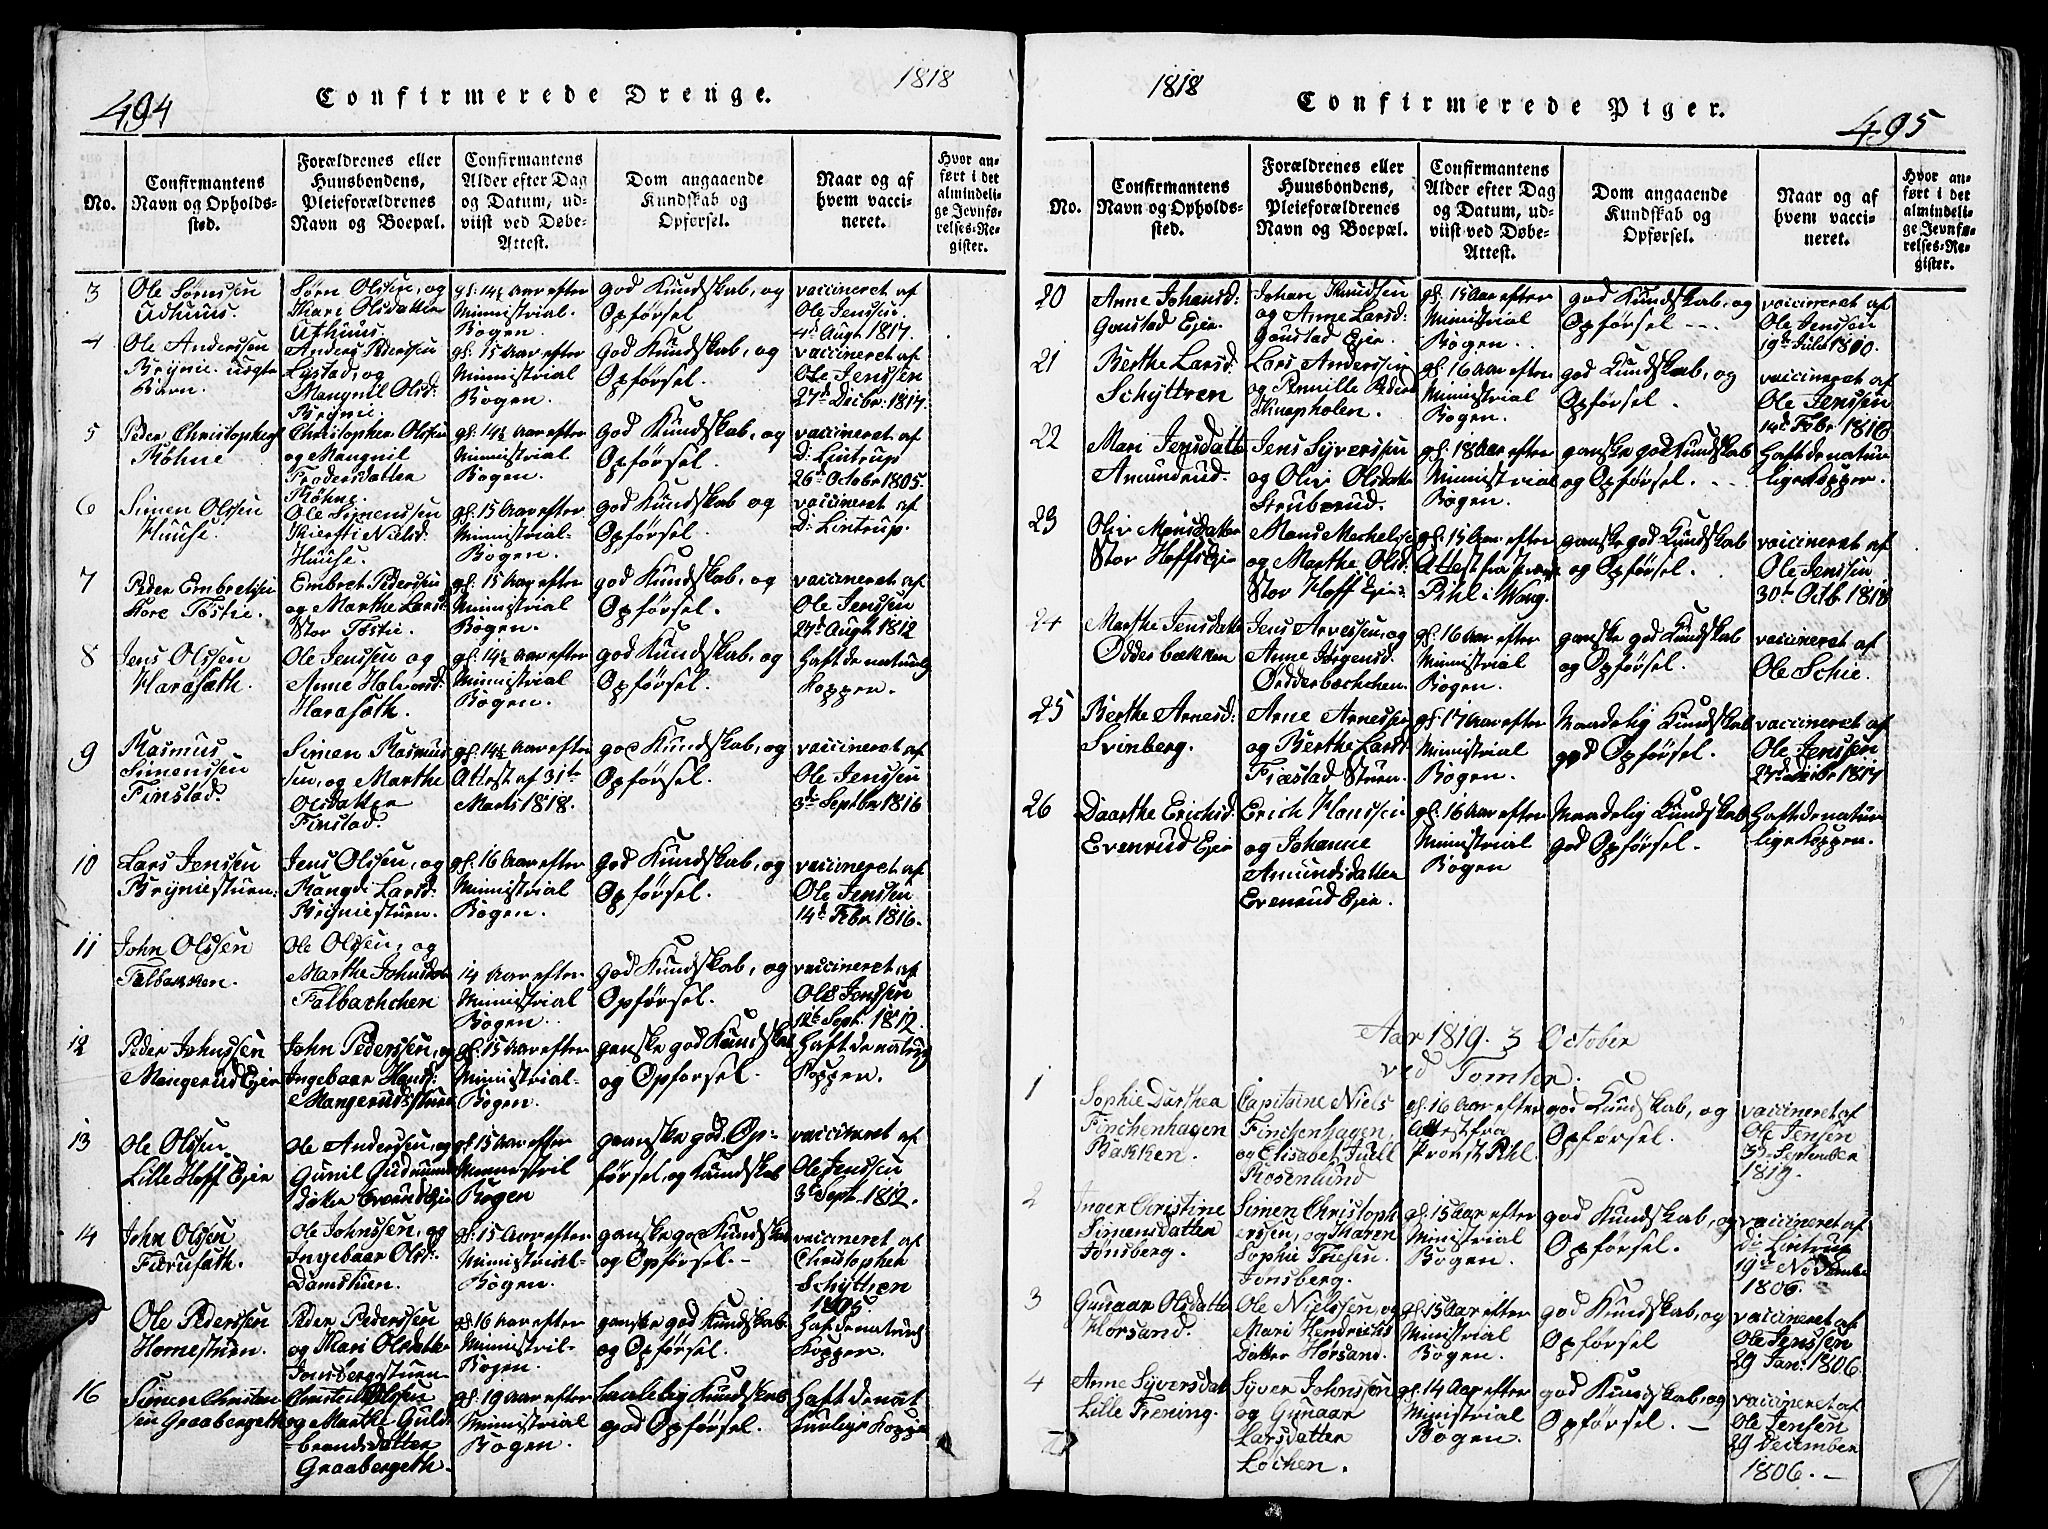 494
Confirmerede Drenge.
1818
No.
Confirmantens
Navn og Opholds-
sted.
Forældrenes eller
Huusbondens,
Pleieforældrenes
Navn og Boepæl.
Confirmantens
Alder efter Dag
og Datum, ud-
viist ved Døbe-
Attest.
Dom angaaende
Kundskab og
Opførsel.
Naar og af
hvem vacci-
neret.
Hvor an-
ført i det
almindeli-
ge Jevnfø-
relses-Re-
gister.
3
Ole Sørnssen
Udhuus.
Sørn Olssen, og
Kari Olsdatter
Udhuus.
gl. 14½ Aar efter
Ministrial
Bogen.
god Kundskab, og
Opførsel
vaccineret af
Ole Jenssen.
4de Augt 1817.
4
Ole Anderssen
Brynie
Barn.
Anders Pederssen
Lystad, og
Mangnil Olsd:
Brynie.
gl. 15 Aar efter
Ministrial
Bogen.
god Kundskab, og
Opførsel.
vaccineret af
Ole Jenssen
27de Decbr. 1817.
5
Peder Christophers
Røhne
Christopher Olssen
og Mangnil
Frodersdatter
Røhne.
gl. 14½ Aar efter
Ministrial
Bogen.
god Kundskab, og
Opførsel.
vaccineret af
D: Lintrup
26de Octobr 1805.
6
Simen Olssen
Huuse.
Ole Simenssen
Kiersti Nielsd.
Huuse.
gl. 15 Aar efter
Ministrial-
Bogen.
god Kundskab og
Opførsel.
vaccineret af
D: Lintrup.
7
Peder Embretssen
Tøstie.
Embret Pederssen
og Marthe Larsd.
Stor Tøstie.
gl. 15 Aar efter
Ministrial
Bogen.
god Kundskab, og
Opførsel.
vaccineret af
Ole Jenssen
27de Augt 1812
8
Jens Olssen
Harasæth.
Ole Jenssen og
Anne Halvord:
Harasæth.
gl. 14½ Aar efter
Ministrial
Bogen.
god Kundskab, og
Opførsel.
Haft de naturlig
Kopper.
9
Rasmus
Simenssen
Finstad.
Simen Rasmus
sen, og Marthe
Olsdatter
Finstad.
gl. 14½ Aar efter
Attest af 31te
Marts 1818.
god Kundskab, og
Opførsel.
vaccineret af
Ole Jenssen
3de Septbr 1816
10
Lars Jenssen
Bryniestuen.
Jens Olssen, og
Rangdi Larsd:
Bryniestuen.
gl. 16 Aar efter
Ministrial
Bogen.
god Kundskab, og
Opførsel.
vaccineret af
Ole Jenssen
14de Febr 1816.
11
John Olssen
Falbakken.
Ole Olssen, og
Marthe Johnsdat
Falbachchen
14 Aar efter
Ministrial
Bogen.
god Kundskab, og
Opførsel.
vaccineret af
Ole Jenssen
12te Sept. 1812.
12
Peder Johnssen
Mangerud Ejer
John Pederssen, og
Ingebaar Hansd:
Mangerudstuen
gl. 15 Aar efter
Ministrial-
Bogen.
ganske god Kundskab
og Opførsel.
Haft de naturlig
Kopper.
13
Ole Olssen
Lille Hoff Ejer
Ole Anderssen, og
Gunil Gudmunds
datter Eier
gl. 15 Aar efter
Ministril
Bogen
ganske god, Op-
førsel, og Kundskab
vaccineret af
Ole Jenssen
3de Sept. 1812.
14
John Olssen
Furusæth.
Ole Johnssen, og
Ingebaar Olsd:
Damstuen.
gl. 15 Aar efter
Ministrial-
Bogen.
ganske god Kundskab
og Opførsel. -
vaccineret af
Christopher
Schyttren
1805
15
Ole Pederssen
Hornestuen.
Peder Pederssen
og Kari Olsdatter
Jonsbergstuen
gl. 16 Aar efter
Ministril-
Bogen.
ganske god Kundskab
og Opførsel.
Haft de naturlig
Kopper.
16
Simen Christen
sen Graabergseth
Christen Olssen
og Marthe Guld-
brandsdatter
Graabergseth.
gl. 19 Aar efter
Ministrial
Bogen.
Taalelig Kundskab
god Opførsel.
Haft de nat-
urlige Kopper
1818
Confirmerede Piger.
495
No.
Confirmantens
Navn og Opholds-
sted.
Forældrenes eller
Huusbondens,
Pleieforældrenes
Navn og Boepæl.
Confirmantens
Alder efter Dag
og Datum, ud-
viist ved Døbe-
Attest.
Dom angaaende
Kundskab og
Opførsel.
Naar og af
hvem vacci-
neret.
Hvor an-
ført i det
almindeli-
ge Jevnfø-
relses-Re-
gister.
20
Anne Johansd:
Goustad Ejer.
Johan Knudssen
og Anne Larsd:
Goustad Ejer.
gl. 15 Aar efter
Ministrial
Bogen.
god Kundskab, og
Opførsel - - -
vaccineret af
Ole Jenssen
19de Juli 1810.
21
Berthe Larsd.
Schyttren
Lars Anderssen
og Pernille Peders
Knapholen.
gl. 16 Aar efter
Ministrial
Bogen.
god Kundskab, og
Opførsel.
vaccineret af
Ole Jenssen
14de Febr 1816
22
Mari Jensdatter
Amundrud.
Jens Syverssen
og Oliv Olsdatter
Struberud.
gl. 18 Aar efter
Ministrial
Bogen.
ganske god Kundskab
og Opførsel. - -
Haft de natur
lige Kopper.
23
Oliv Monsdatter
Stor Hoffs Ejer
Mons Mechelsen
og Marthe Olsd.
Stor Hoff Ejer.
gl. 15 Aar efter
Attest fra Provst
Pihl i Wang.
ganske god Kundskab
og Opførsel.
vaccineret af
Ole Jenssen
30te Octb. 1818
24
Marthe Jensdatter
Oddersbækken
Jens Arvessen, og
Anne Jørgensd.
Ødderbæchchen.
gl. 16 Aar efter
Ministrial
Bogen.
ganske god Kundskab
og Opførsel.
vaccineret af
Ole Schie.
25
Berthe Arnesd:
Svinberg.
Arne Arnessen
og Berthe Larsd.
Fiæstad Stuen.
gl. 17 Aar efter
Ministrial
Bogen.
Maadelig Kundskab
god Opførsel.
vaccineret af
Ole Jenssen
27de Decbr 1817
26
Daarthe Erichsd.
Evenrud Ejer
Erich Hanssen
og Johanne
Amundsdatter
Evenrud Ejer.
gl. 16 Aar efter
Ministrial
Bogen
Maadelig Kundskab
god Opførsel.
Haft de natur
lige Kopper.
Aar 1819. 3 October
ved Tomter.
1
Sophie Dorthea
Finchenhagen
Bakken.
Capitaine Niels
Finchenhagen,
og Elisabet Juell
Rosenlund
gl. 16 Aar efter
Attest fra
Provst Pihl.
god Kundskab, og
Opførsel.
vaccineret af
Ole Jensen
3de September
1819.
2
Inger Christine
Simensdatter
Jonsberg.
Simen Christoph
erssen, og Karen
Sophie Friesen
Jonsberg.
gl. 15 Aar efter
Ministrial
Bogen.
god Kundskab, og
Opførsel.
vaccineret af
D: Lintrup
19de Novembr
1806.
3
Gunaar Olsdatter
Horsand.
Ole Nielssen, og
Mari Hendrichs
datter Horsand.
gl. 15 Aar efter
Ministrial
Bogen.
god Kundskab, og
Opførsel
vaccineret af
Ole Jenssen
29 Jan: 1806.
4
Anne Syversdat
Lille Frening.
Syver Johnssen
og Gunaar
Larsdatter
Løchen.
gl. 14 Aar efter
Ministrial
Bogen.
god Kundskab, og
Opførsel. -
vaccineret af
Ole Jensen
29 December
1806. -